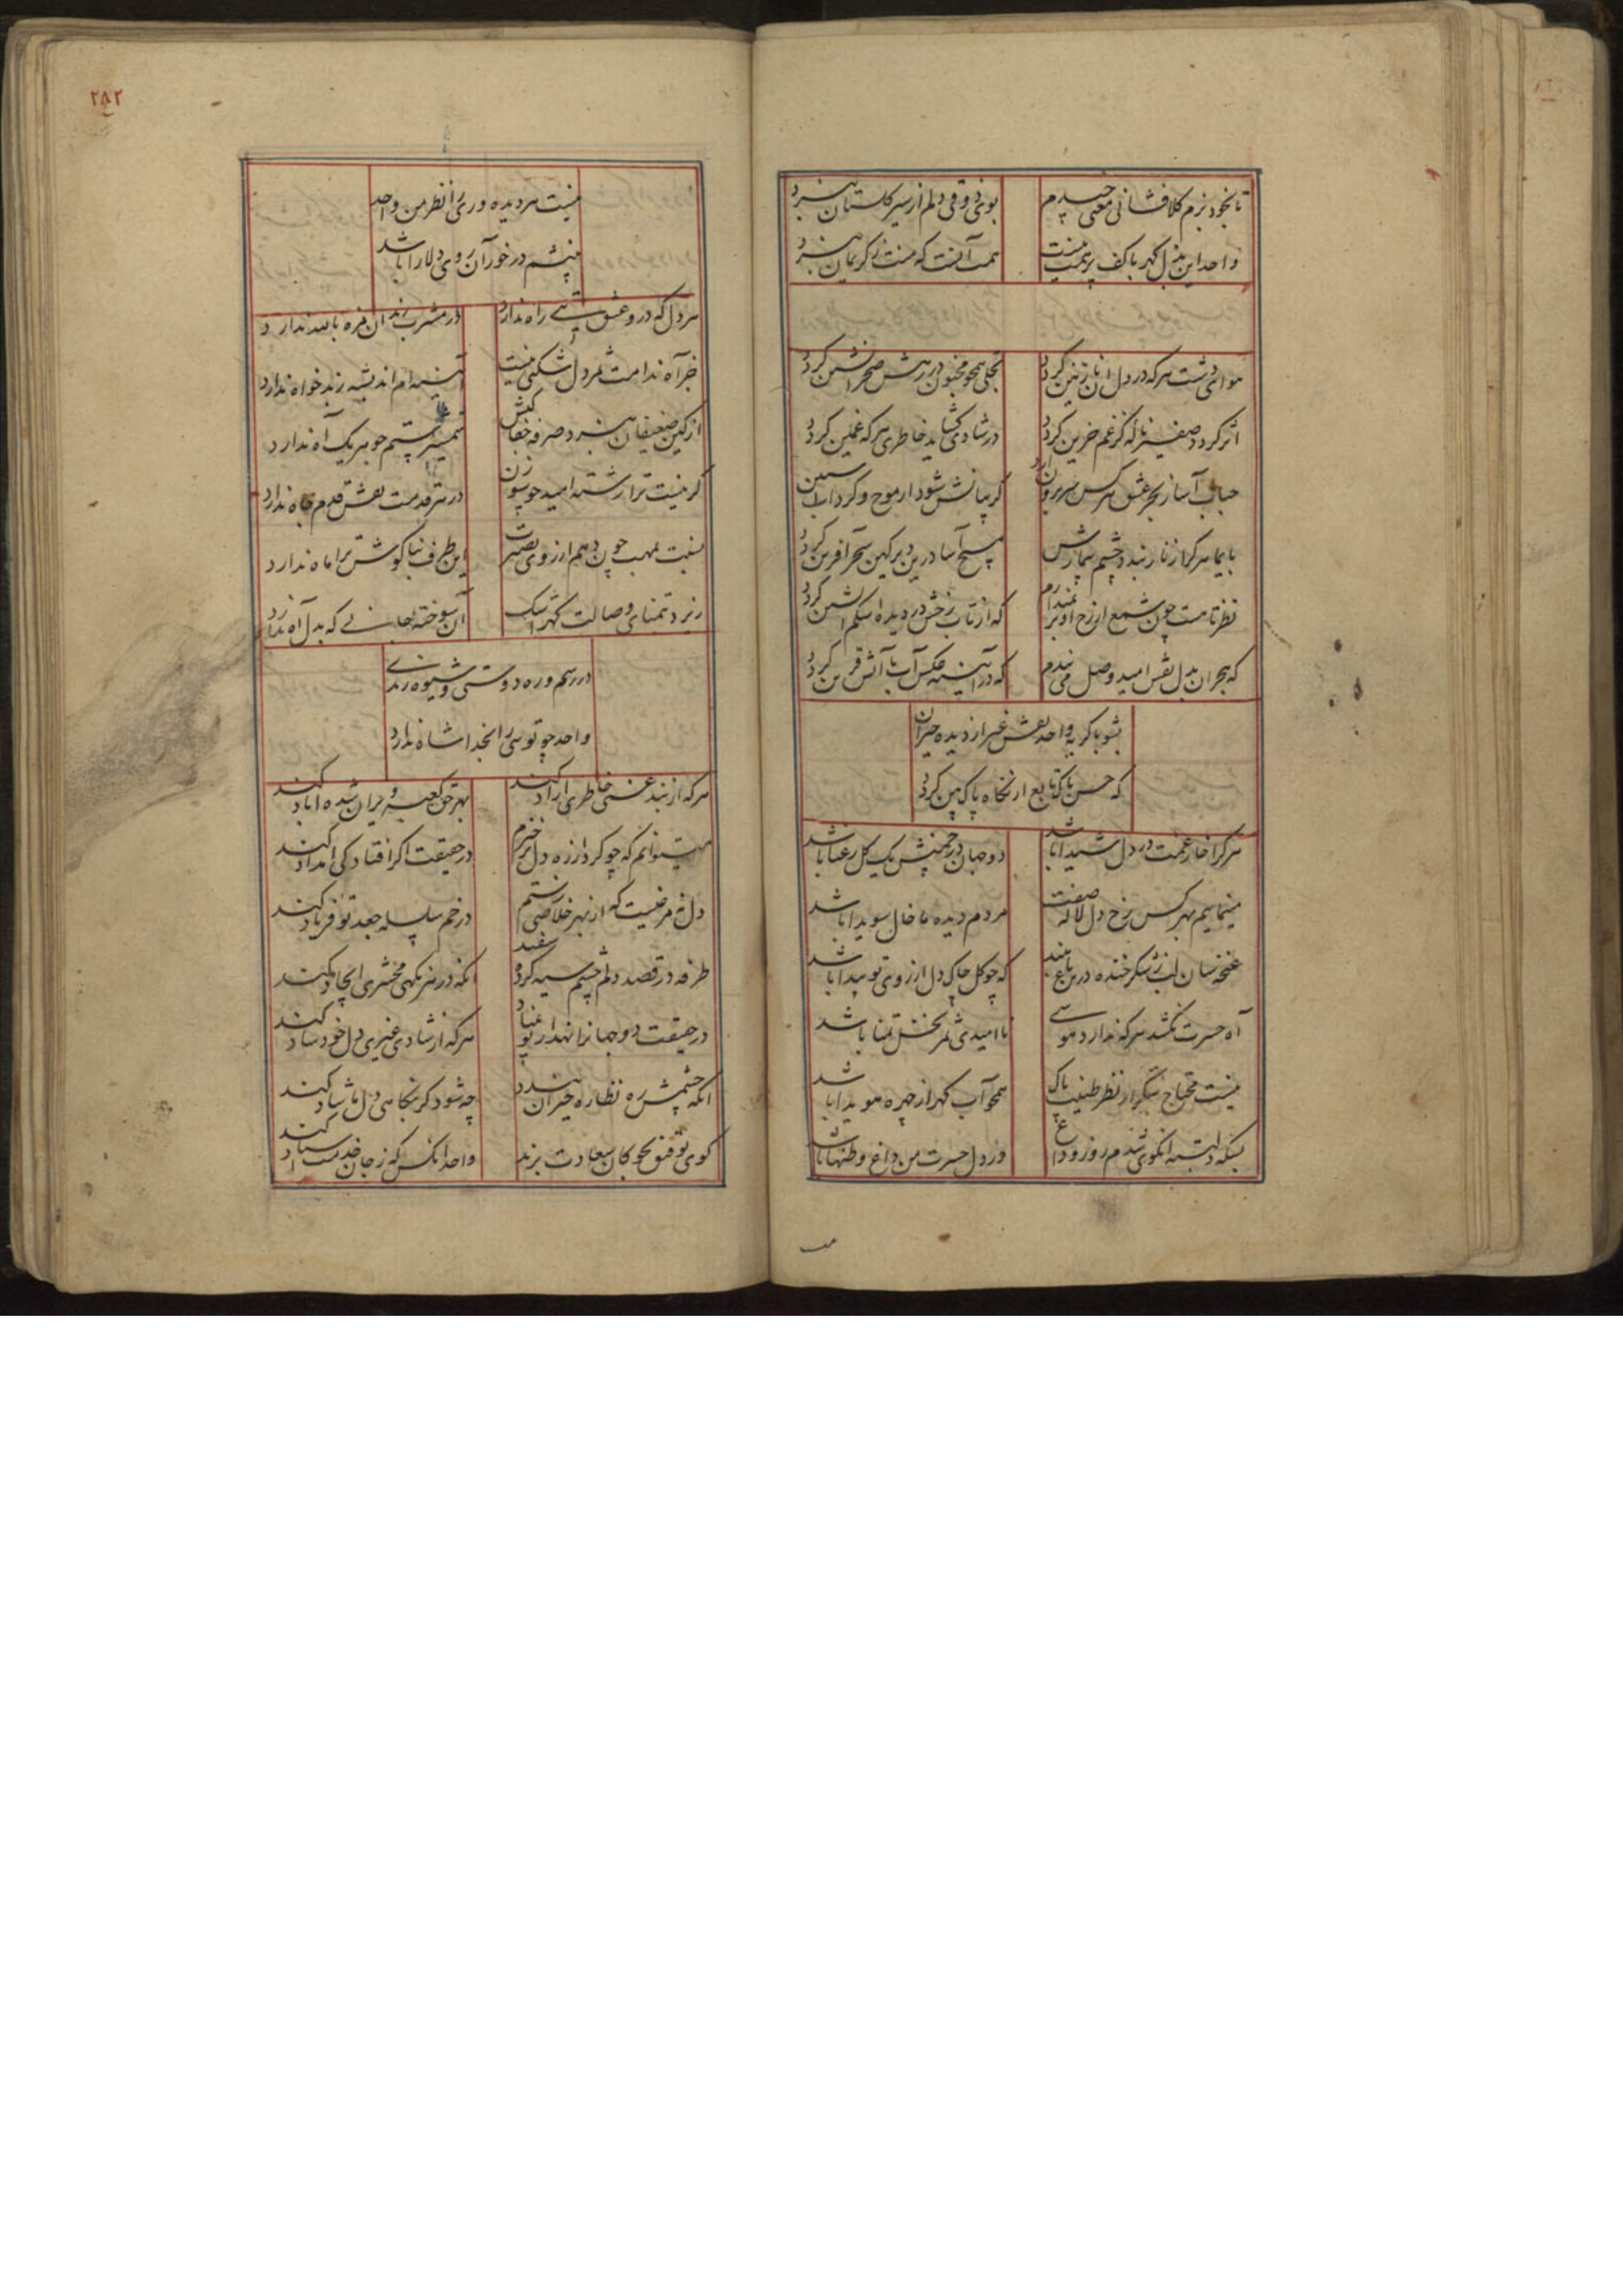 تا بخود بزم کلافشانی معنی چیدم
بوی ذوقی دلم از سیر کلستان نبرد
واحد این بذل کهر با کف پر
همت آنست که منت ز کریمان نبرد
هوای دشت هرکه در دل
تجلی همچو مجنون در رهش صحرا نشین کردد
اثر کردد صفیر ناله کز غم حزین کردد
در شادی کشاید خاطری هرکه غمین کردد
حباب آسا ز بحر عشق هرکس سر برون ارد
کریبانش شود از موج و کرداب
بایما هرکرا زنار بندد چشم بیمارش
مسیح آسا درین دیر کهن سحر افرین کردد
نظر تا هست چون شمع از رخ او بر
که از تاب رخش در دیده اشکم آتشین کردد
که هجران بدل نقش امید وصل می بندم
که در آیینه عکس آب با آتش قرین کردد
بشو با کریه واحد نقش غیر از دیده حیران
که حسن پاک تابع از نکاه پاک بین کردد
هرکرا خار غمت در دل شیدا باشد
دو جهان در چمنش یک کل رعنا باشد
مینماییم بهرکس رخ دل لاله صفت
مردم دیده ما خال سویدا باشد
غنچه سان لب ز شکر خنده در باغ
که چو کل چاک دل از روی تو پیدا باشد
آه حسرت نکشد هرکه ندارد هوسی
نا امیدی ثمر نخل تمنا باشد
نیست محتاج نظر طینت پاک
همچو آب کهر از چهره هویدا باشد
بسکه دلبسته انکوی شدم روز وداع
در دل حسرت من داغ وطنها باشد
مب
۲۸۲
نیست هر دیده وری را نظر من واحد
چشم در خور آن روی دلارا باشد
هر دل که در و عشق بتی راه ندارد
در مشرب رندان مزه باالله ندارد
جز آه ندامت ثمر دل شکنی نیست
آیینه ام اندیشه ز بدخواه ندارد
از کین ضعیفان نبرد صرفه جفا کیش
شمشیر ستم جوهر یک آه ندارد
کر نیست ترا رشته امید چو سوزن
در هر قدمت نقش قدم چاه ندارد
نسبت بمهت چون دهم از روی بصیرت
این طرف بناکوش ترا ماه ندارد
ریزد تمنای وصالت کهر اشک
آن سوخته جانی که بدل آه ندارد
در رسم و ره دوستی و شیوه رندی
واحد چو تویی را بخدا شاه ندارد
هرکه از بند غمی خاطری آزاد کند
بهتر حق کعبه ویران شده اباد کند
میتوانم که چو کرد از ره دل برخیزم
در حقیقت اکر افتادکی امداد کند
دل نه مرغیست که از بهر خلاصی ز ستم
در خم سلسله جعد تو فریاد کند
طرفه در قصد دلم چشم سیه کرده سفید
انکه در هر نکهی محشری ایجاد کند
در حقیقت دو جهانرا نهد از نو بنیاد
هرکه از شادی غیری دل خود شاد کند
انکه چشمش ره نظاره حیران بندد
چه شود کر نکاهی دل ما شاد کند
کوی توفیق بچوکان سعادت بزند
واحد انکس که ز جان خدمت استاد کند